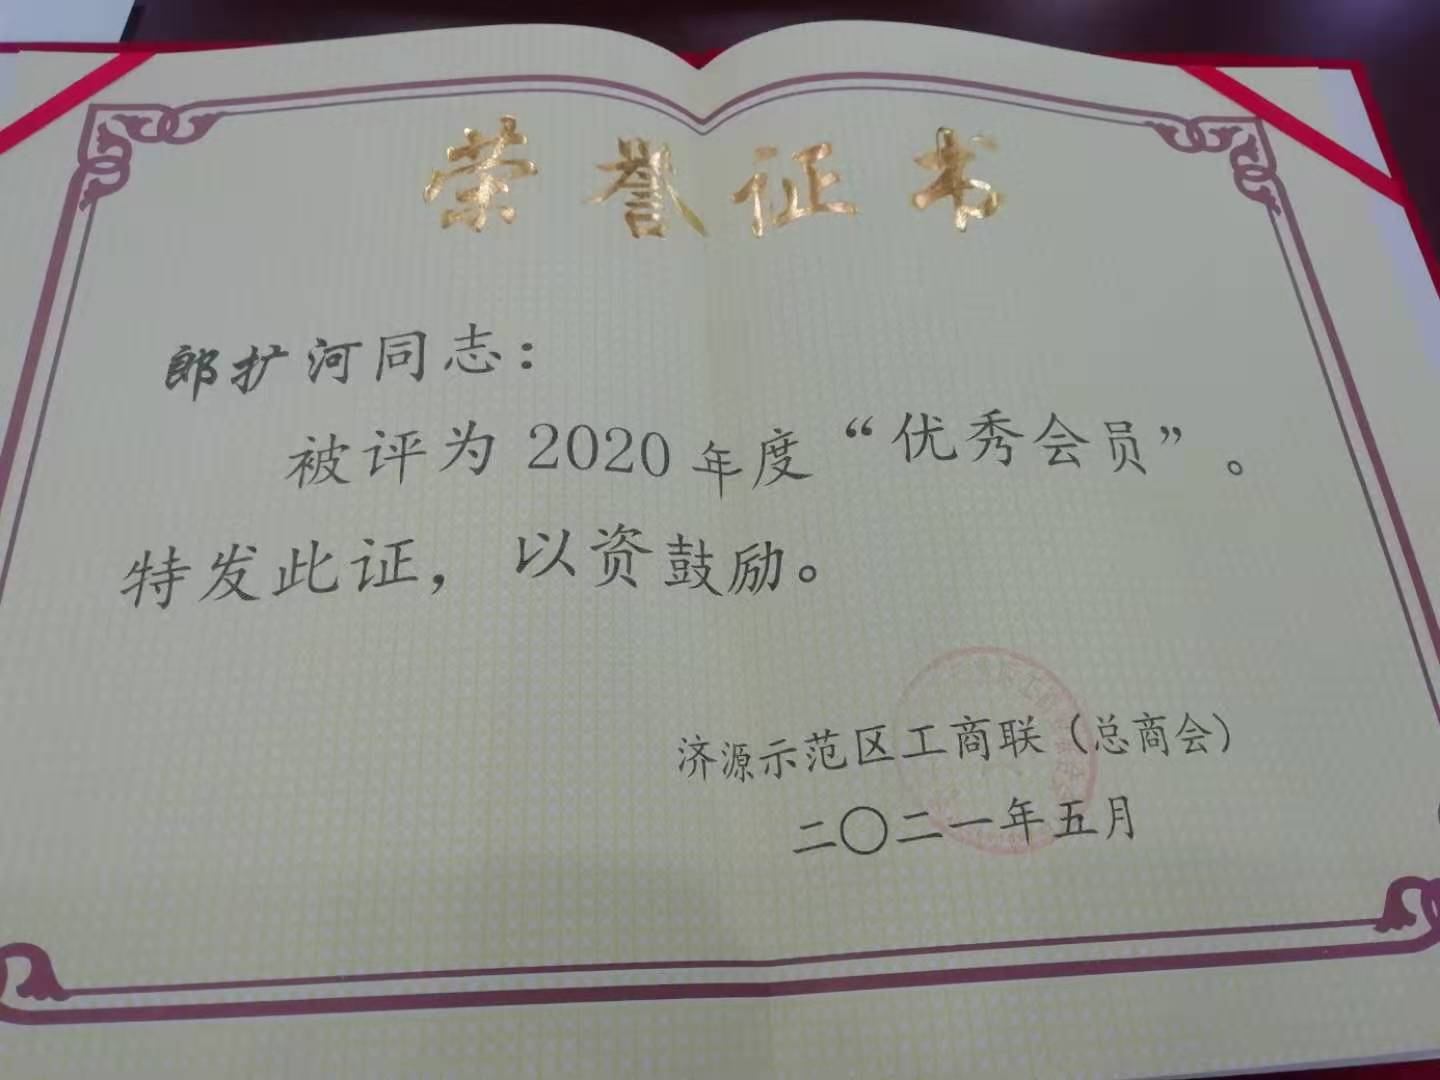 荣誉证书
郎扩河同志：
被评为2020年度“优秀会员”。
特发此证，以资鼓励。
济源示范区工商联（总商会）
二〇二一年五月